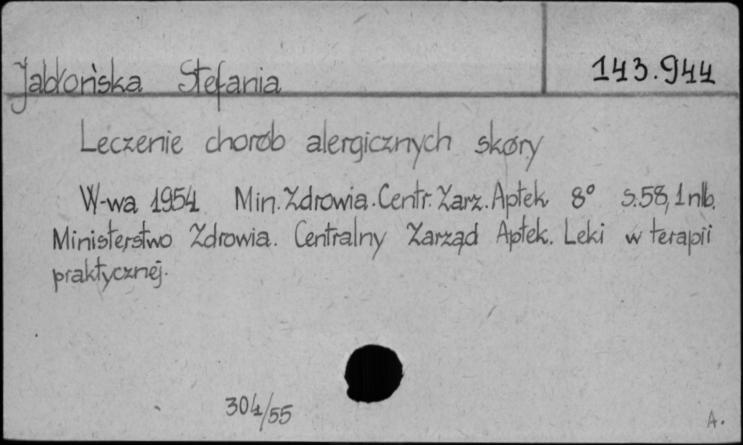 Jabłońska Stefania
143.944
Leczenie chorób alergicznych skóry
W-wa 1954 Min. Zdrowia. Centr. Zarz. Aptek 8° s. 58, 1 nlb.
Ministerstwo Zdrowia. Centralny Zarząd Aptek. Leki w terapii
praktycznej.
304/55
A.